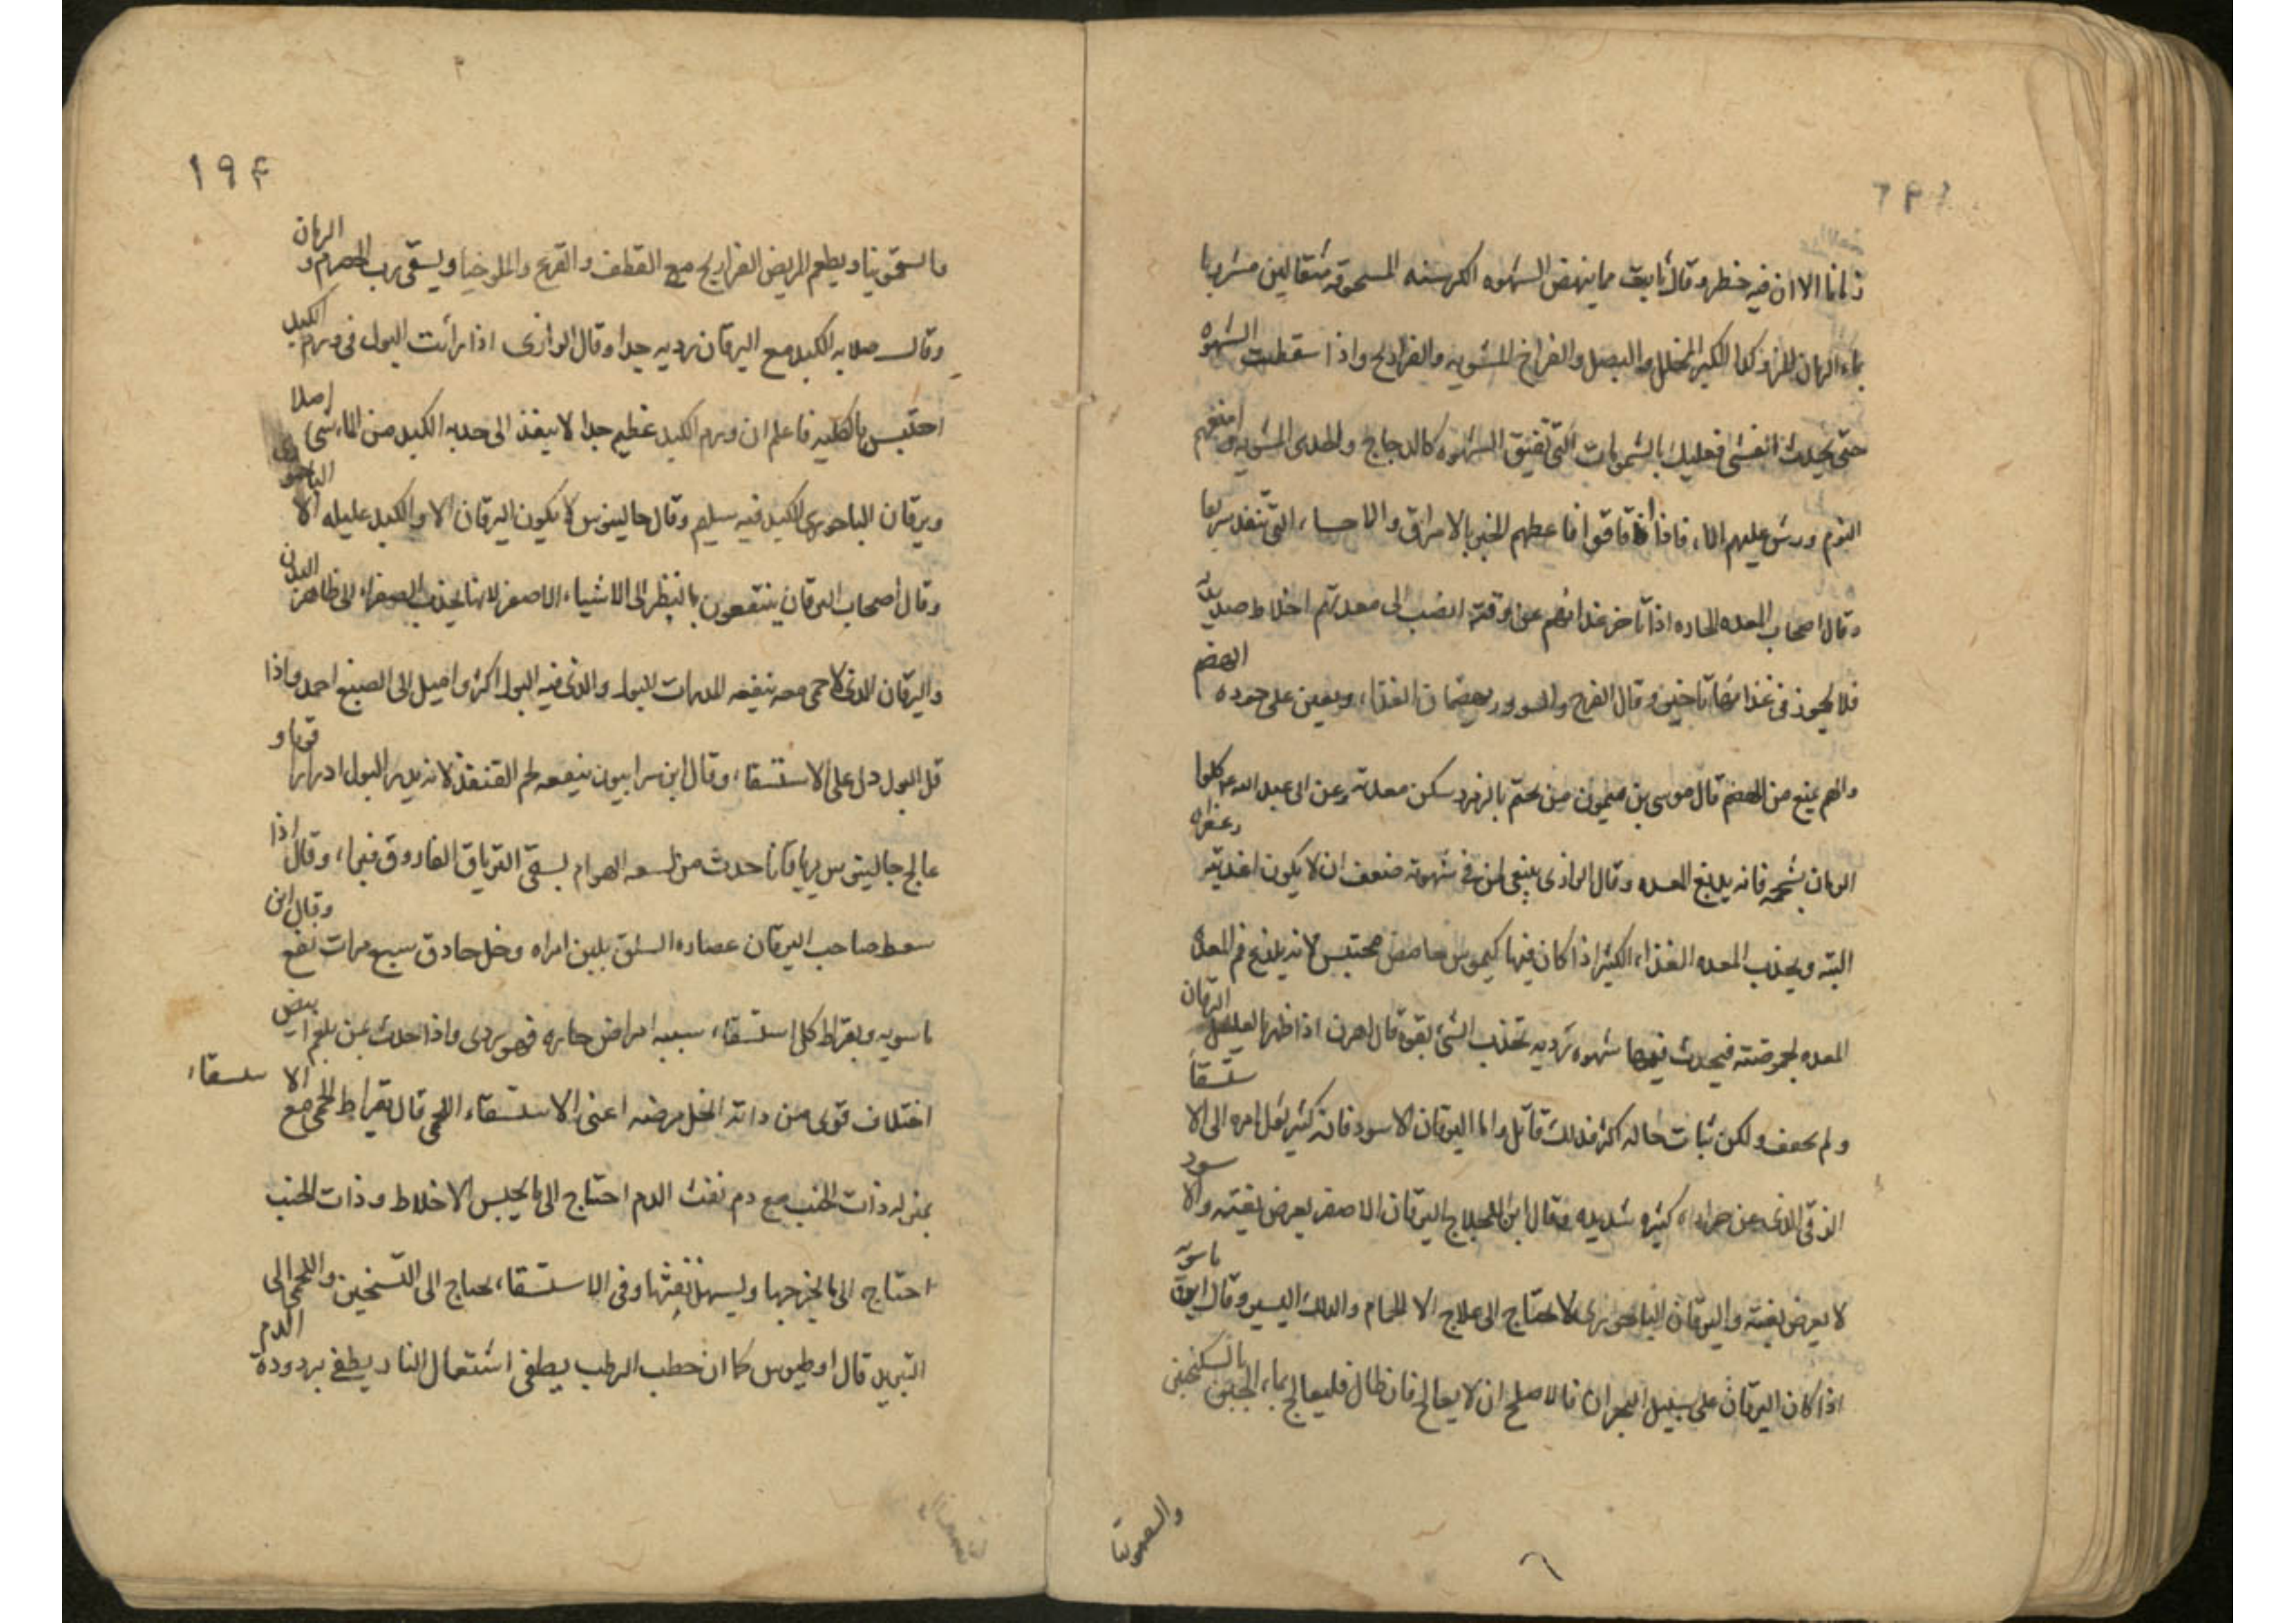 زمانا الا ان فيه خطر وقال ثابت مما ينهض الشهوه الكرسنه المسحوقه مثقالين مشربا
بماء الرمان المز وكذا الكبر المخلل والبصل والفراخ المشويه والفراريج واذا سقطت الشهوه
حتى يحدث الغشى فعليك بالشمومات التى تفيق الشهوه كالدجاج والجدى المشويه وامنعهم
النوم ورش عليهم الماء فاذا افاقوا فاعطهم الخبز بالامراق والاحساء التى تنفذ سريعا
وقال اصحاب المعده الحاره اذا تاخر غذائهم عن وقته انصب الى معدتهم اخلاط صديديه
فلا يجوز فى غذائها تاخير وقال الفرح والسرور يهضمان الغذاء ويعين على جوده الهضم
والهم يمنع من الهضم قال موسى بن ميمون من تختم بالزمرد سكن معدته وعن ابى عبد الله ع كلوا
الرمان بشحمه فانه يدبغ المعده وقال الرازى ينبغى لمن فى شهوته ضعف ان لا يكون اغذيته
البته ويجذب المعده الغذاء الكثير اذا كان فيها كيموس حامض محتبس لانه يلذع فم المعده
المعده لحموضته فيحدث فيها شهوه رديه تجذب الشئ بقوه قال اهرن اذا ظهر بالعليل اليرقان
ولم يخف ولكن ثبات حاله اكثر فذلك قاتل واما اليرقان الاسود فانه كثير امره الى الاستسقا
الذقى الذى من حراره كثيره شديده وقال ابن الجلاج اليرقان الاصفر يعرض بغته والاسود
لا يعرض بغته واليرقان الباحورى لا يحتاج الى علاج الا الحمام والدلك اليسير وقال ابن ماسويه
اذا كان اليرقان على سبيل البحران فالاصلح ان لا يعالج فان طال فليعالج بماء الجبن بالسكنجبين
والسقمونيا
١٩۴
والسقمونيا ويطعم المريض الفراريج مع القطف والقرع والملوخيا ويسقى رب الحصرم والرمان
وقال صلابه الكبد مع اليرقان رديه جدا وقال الرازى اذا رأيت البول فى ورم الكبد
احتبس بالكليه فاعلم ان ورم الكبد عظيم جدا لا ينفذ الى حدبه الكبد من الماء شى اصلا
ويرقان الباحورى الكبد فيه سليم وقال جالينوس لا يكون اليرقان الا والكبد عليله الا الباحورى
وقال اصحاب اليرقان ينتفعون بالنظر الى الاشياء الاصفر لانها يجذب الصفراء الى ظاهر البدن
واليرقان الذى لا حمى معه ينفعه المدرات البول والذى فيه البول اكثر واميل الى الصبغ احمد واذا
قل البول دل على الاستسقاء وقال ابن سرابيون ينفعه لحم القنفذ لانه يدر البول ادرارا قويا و
عالج جالينوس يرقانا حدث من لسعه الهوام بسقى الترياق الفاروق فبرا وقال اذا
سعط صاحب اليرقان عصاره السلق بلبن امراه وخل حاذق سبع مرات نفع وقال ابن
ماسويه وبقراط كل استسقاء سببه امراض حاره فهو ردى واذا حدث عن بلغم ابيض
اختلاف قوى من ذاته انحل مرضه اعنى الاستسقاء اللحمى قال بقراط الحمى مع الاستسقاء
بمنزله ذات الجنب مع دم نفث الدم احتاج الى ما يحبس الاخلاط وذات الجنب
احتاج الى ما يخرجها ويسهل نفثها وفى الاستسقاء يحتاج الى التسخين والحمى الى
التبريد قال اوطيوس كما ان حطب الرطب يطفى اشتعال النار يطفى برودة الدم